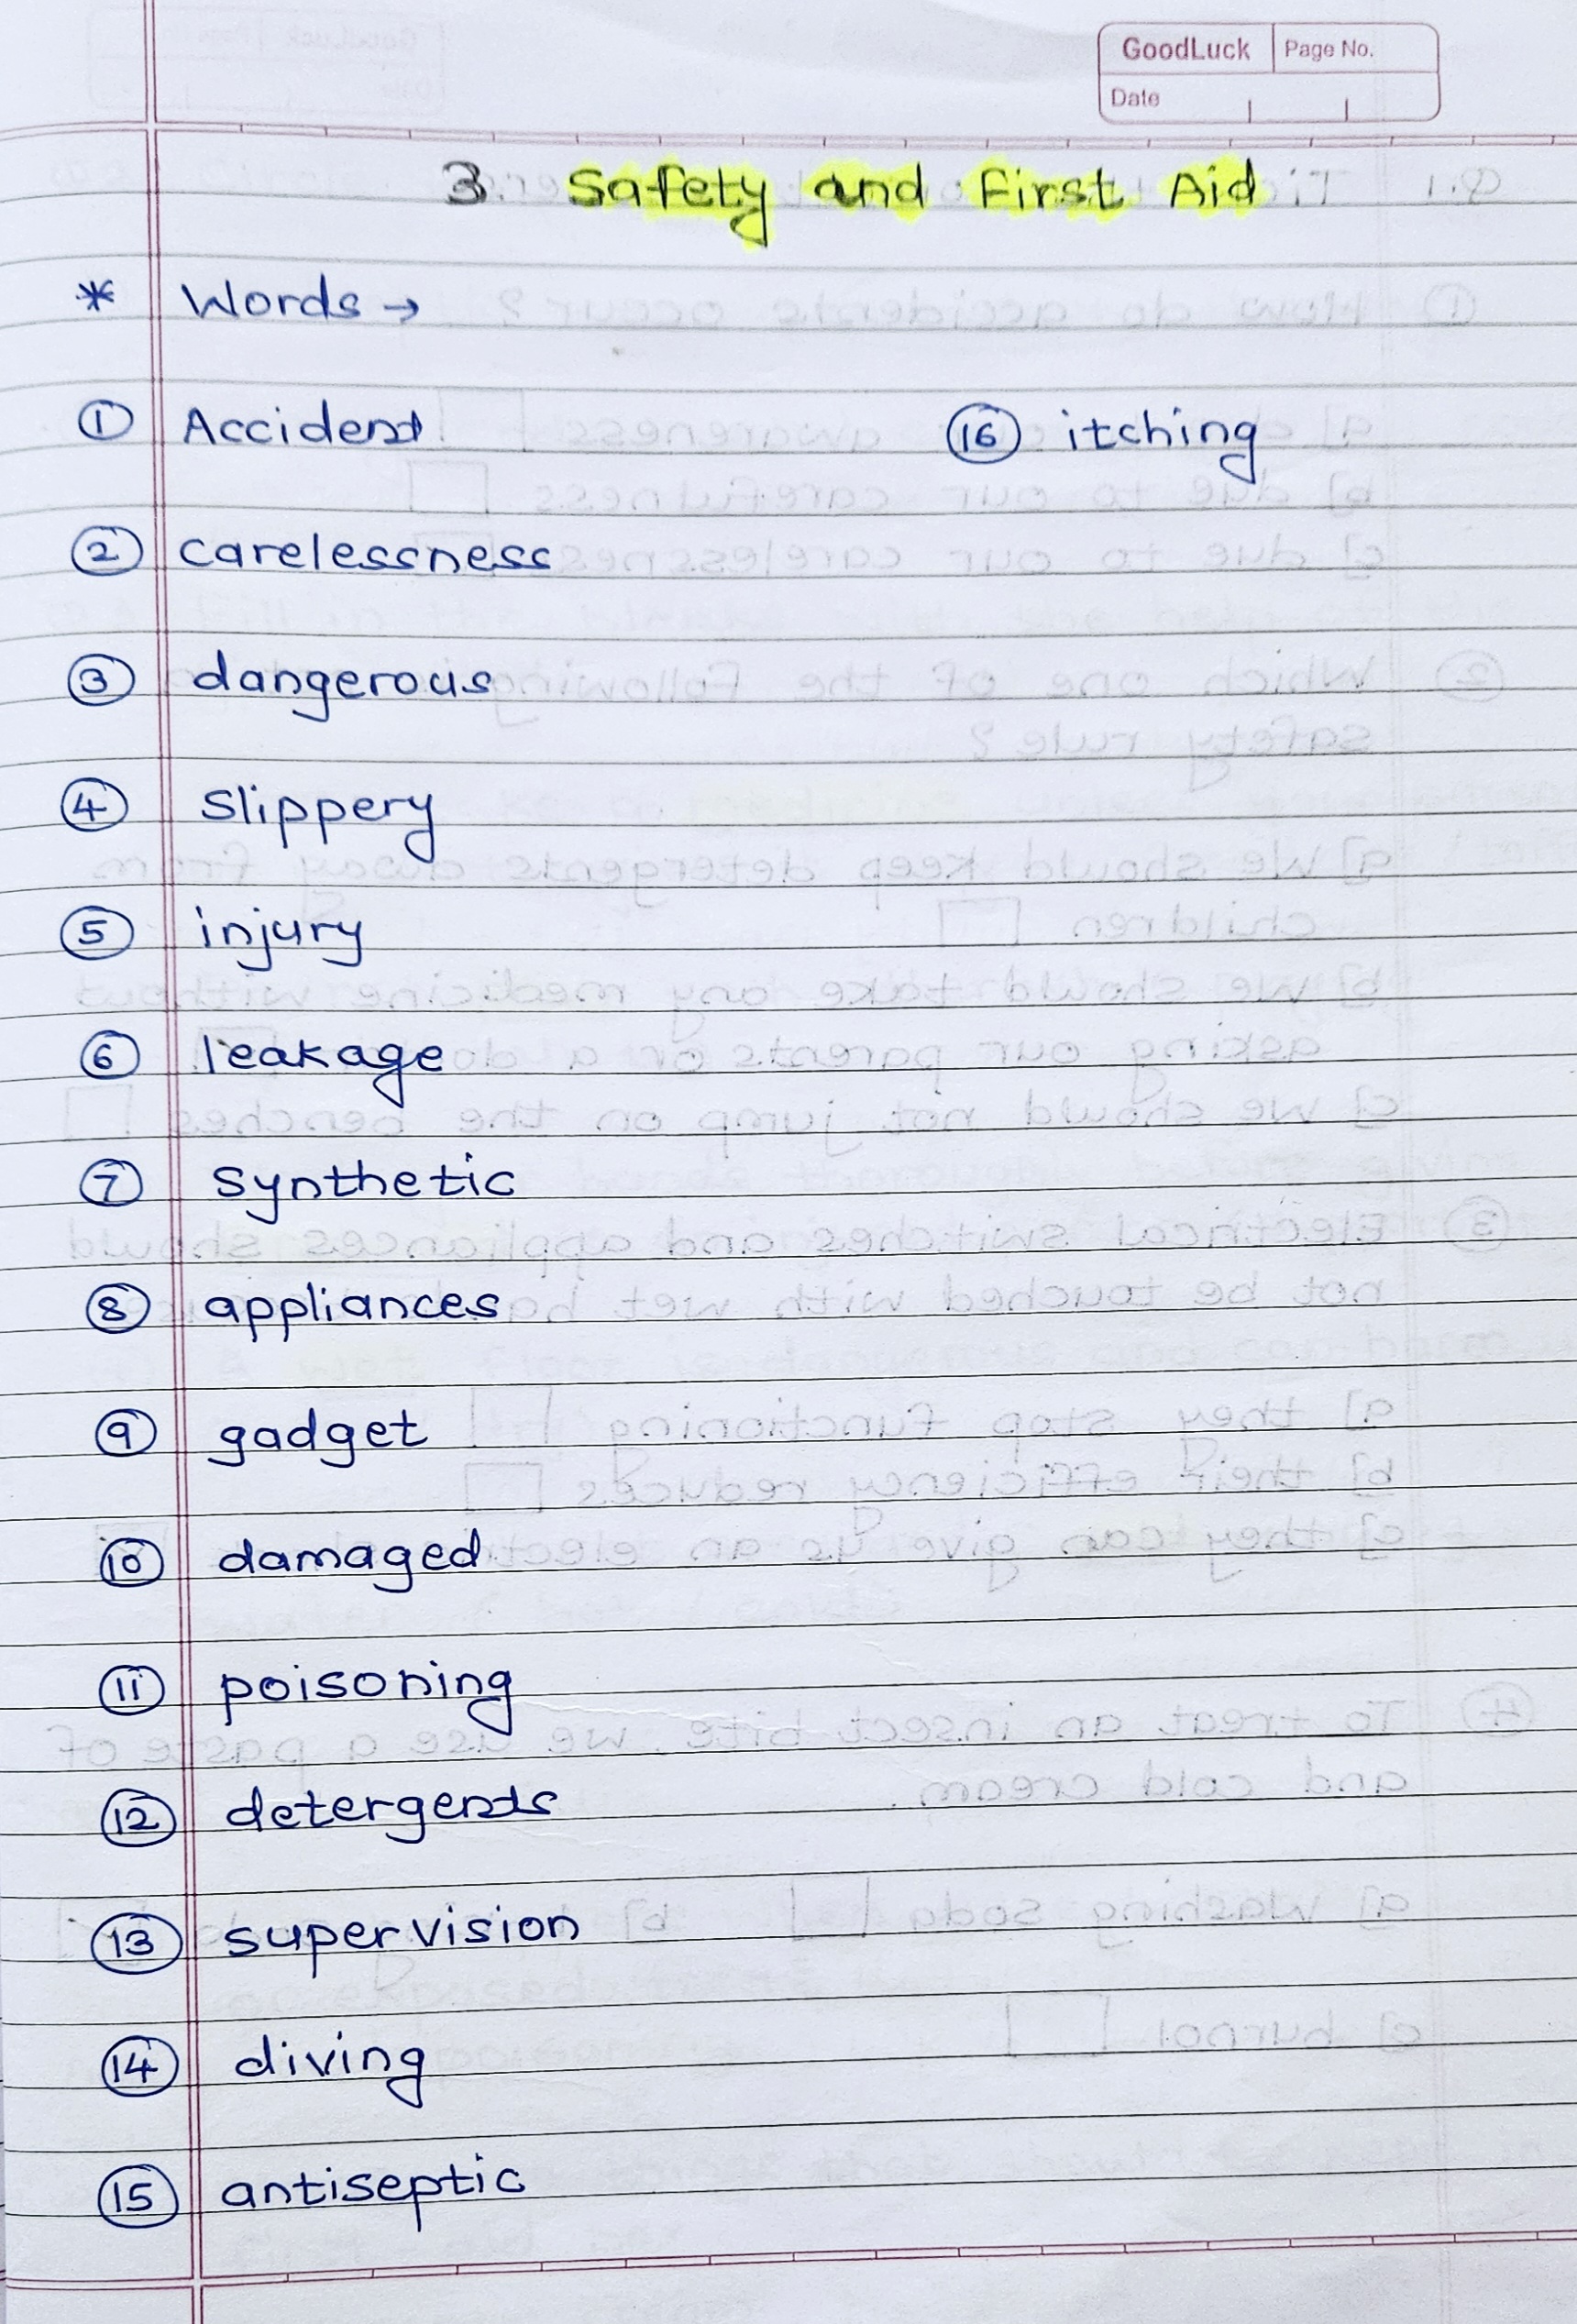 GoodLuck Page No.
Date
3 Safety and First Aid
* Words →
① Accident
② carelessness
③ dangerous
④ Slippery
⑤ injury
⑥ leakage
⑦ Synthetic
⑧ appliances
⑨ gadget
⑩ damaged
⑪ poisoning
⑫ detergents
⑬ supervision
⑭ diving
⑮ antiseptic
⑯ itching